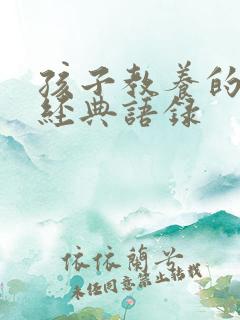 孩子教養的
經典語錄
依依蘭兮
未經同意禁止轉載